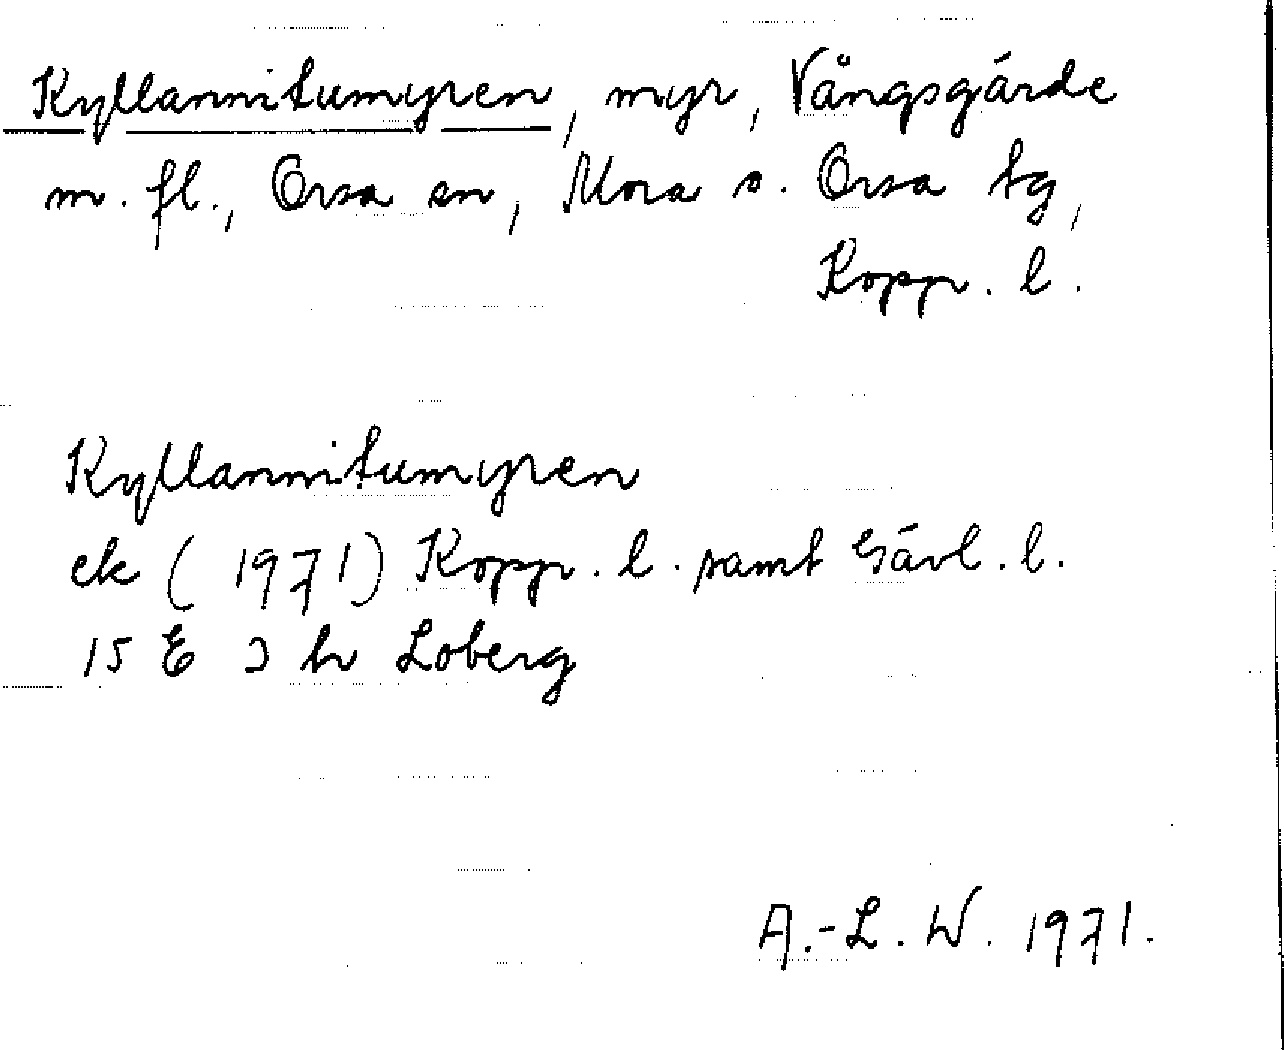 Kyllannitumyren, myr, Vångsgärde
m. fl., Orsa sn, Mora o. Orsa tg,
Kopp. l.
Kyllannitumyren
ek (1971) Kopp. l. samt Gävl. l.
15 E 3 h Loberg
A.-L. W. 1971.